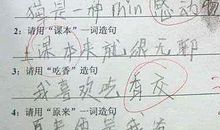 猫是一种min感动物
2：请用“课本”一词造句
上课本来就很无聊
3：请用“吃香”造句
我喜欢吃香交
4：请用“原来”一词造句